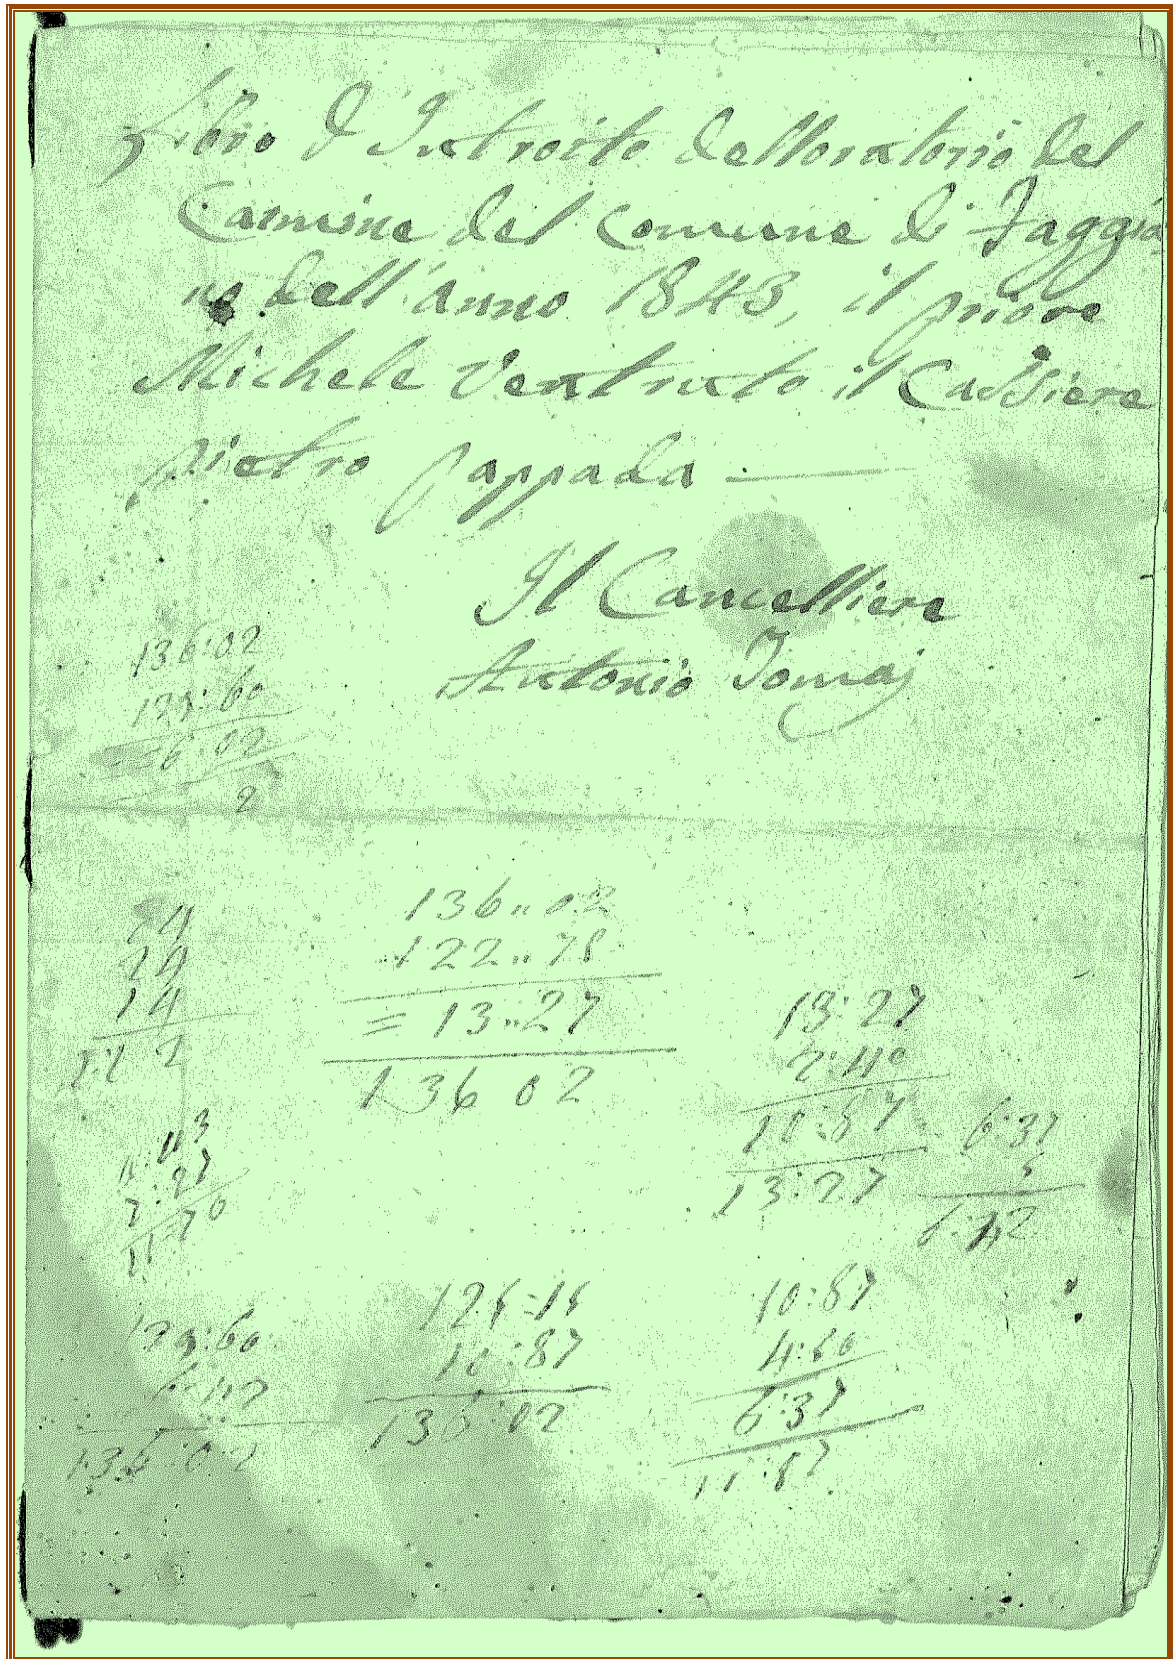 Libro d'Introito delloratorio del
Carmine del Comune di Faggia
no dell'anno 1843, il priore
Michele Ventruto il Cassiere
pietro pappada
Il Cancelliere
Antonio Tomaj
136:02
129:60
6:02
2
14
14
136..02
122..75
= 13..27
136 02
13:27
2:40
10:87
13:27
6:37
6:42
129:60
6:42
136:02
10:87
136:02
10:87
6:37